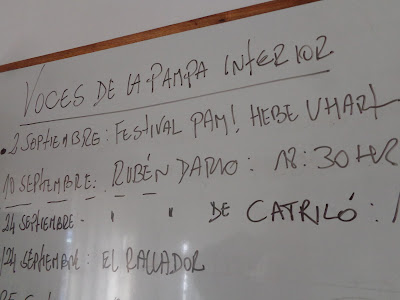 VOCES DE LA PAMPA INTERIOR
• 2 SEPTIEMBRE: FESTIVAL PAM! HEBE UHART
10 SEPTIEMBRE: RUBÉN DARIO: 18:30 HR
24 SEPTIEMBRE - " " DE CATRILÓ:
24 SEPTIEMBRE: EL RALLADOR